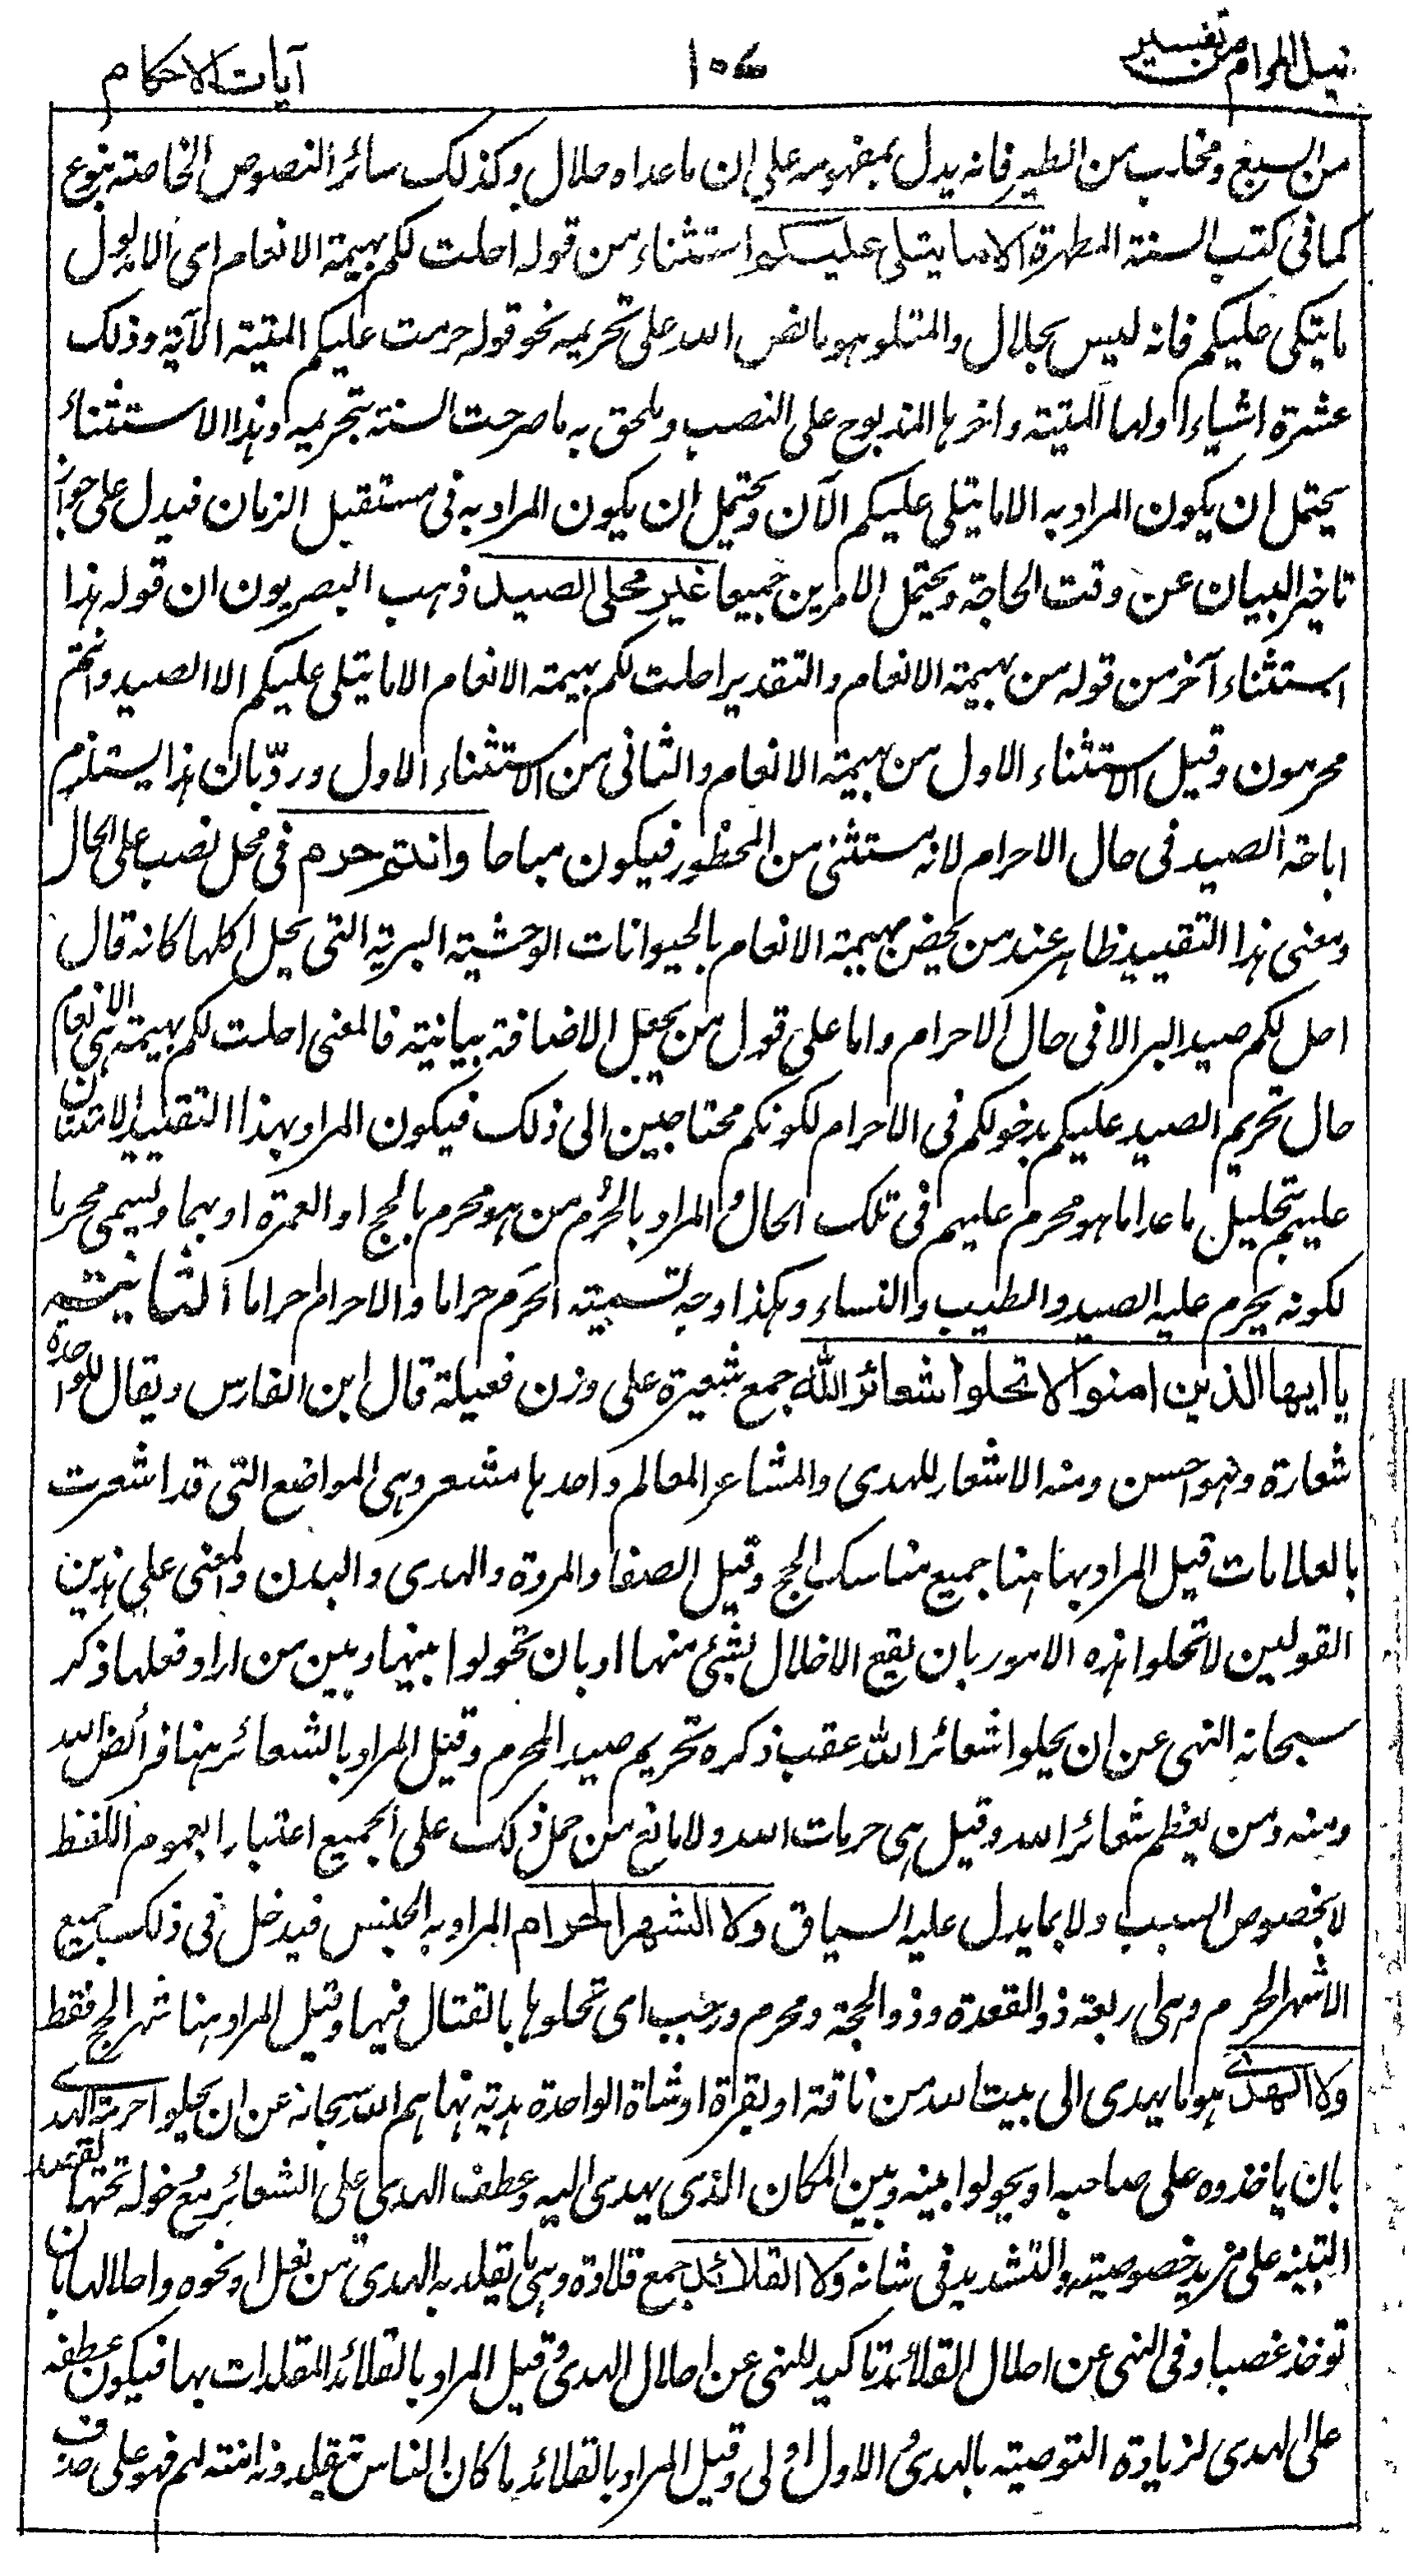 نيل المرام من تفسير ١٥٧ آيات الاحكام
من السبع ومخلب من الطير فانه يدل بمفهومه على ان ما عداه حلال وكذلك سائر النصوص الخاصة بنوع
كما فى كتب السنة المطهرة الا ما يتلى عليكم استثناء من قوله احلت لكم بهيمة الانعام اى الا مدلول
ما يتلى عليكم فانه ليس بحلال والمتلو هو ما نص الله على تحريمه نحو قوله حرمت عليكم الميتة الآية وذلك
عشرة اشياء اولها الميتة واخرها المذبوح على النصب ويلحق به ما صرحت السنة بتحريمه وهذا الاستثناء
يحتمل ان يكون المراد به الا ما يتلى عليكم الآن ويحتمل ان يكون المراد به فى مستقبل الزمان فيدل على جواز
تاخير البيان عن وقت الحاجة ويحتمل الامرين جميعا غير محلى الصيد ذهب البصريون ان قوله هذا
استثناء آخر من قوله من بهيمة الانعام والتقدير احلت لكم بهيمة الانعام الا ما يتلى عليكم الا الصيد وانتم
محرمون وقيل الاستثناء الاول من بهيمة الانعام والثانى من الاستثناء الاول وردّ بان هذا يستلزم
اباحة الصيد فى حال الاحرام لانه مستثنى من المحظور فيكون مباحا وانتم حرم فى محل نصب على الحال
ومعنى هذا التقييد ظاهر عند من يخص بهيمة الانعام بالحيوانات الوحشية البرية التى يحل اكلها كانه قال
احل لكم صيد البر الا فى حال الاحرام واما على قول من يجعل الاضافة بيانية فالمعنى احلت لكم بهيمة هى الانعام
حال تحريم الصيد عليكم بدخولكم فى الاحرام لكونكم محتاجين الى ذلك فيكون المراد بهذا التقييد الامتنان
عليهم بتحليل ما عدا ما هو محرم عليهم فى تلك الحال والمراد بالحُرُم من هو محرم بالحج او العمرة او بهما ويسمى محرما
لكونه يحرم عليه الصيد والطيب والنساء وهكذا وجه تسمية الحَرَم حراما والاحرام حراما الثانية
يا ايها الذين امنوا لا تحلوا شعائر الله جمع شعيرة على وزن فعيلة قال ابن الفارس ويقال للواحدة
شعارة وهو احسن ومنه الاشعار للهدى والمشاعر المعالم واحدها مشعر وهى المواضع التى قد اشعرت
بالعلامات قيل المراد بها هنا جميع مناسك الحج وقيل الصفا والمروة والهدى والبدن والمعنى على هذين
القولين لا تحلوا هذه الامور بان يقع الاخلال بشئ منها او بان تحولوا بينها وبين من اراد فعلها ذكر
سبحانه النهى عن ان يحلوا شعائر الله عقب ذكره تحريم صيد المحرم وقيل المراد بالشعائر هنا فرائض الله
ومنه ومن يعظم شعائر الله وقيل هى حرمات الله ولا مانع من حمل ذلك على الجميع اعتبارا بعموم اللفظ
لا بخصوص السبب ولا بما يدل عليه السياق ولا الشهر الحرام المراد به الجنس فيدخل فى ذلك جميع
الاشهر الحرم وهى اربعة ذو القعدة وذو الحجة ومحرم ورجب اى تحلوها بالقتال فيها وقيل المراد هنا شهر الحج فقط
ولا الهدى هو ما يهدى الى بيت الله من ناقة او بقرة او شاة الواحدة هدية نهاهم الله سبحانه عن ان يحلوا حرمة الهدى
بان ياخذوه على صاحبه او يحولوا بينه وبين المكان الذى يهدى اليه وعطف الهدى على الشعائر مع دخوله تحتها لقصد
التنبيه على مزيد خصوصيته والتشديد فى شانه ولا القلائد جمع قلادة وهى ما يقلد به الهدى من نعل او نحوه واحلالها بان
توخذ غصبا وفى النهى عن احلال القلائد تاكيد للنهى عن احلال الهدى وقيل المراد بالقلائد المقلدات بها فيكون عطفه
على الهدى لزيادة التوصية بالهدى والاول اولى وقيل المراد بالقلائد ما كان الناس يتقلدونه امنة لهم فهو على حذف